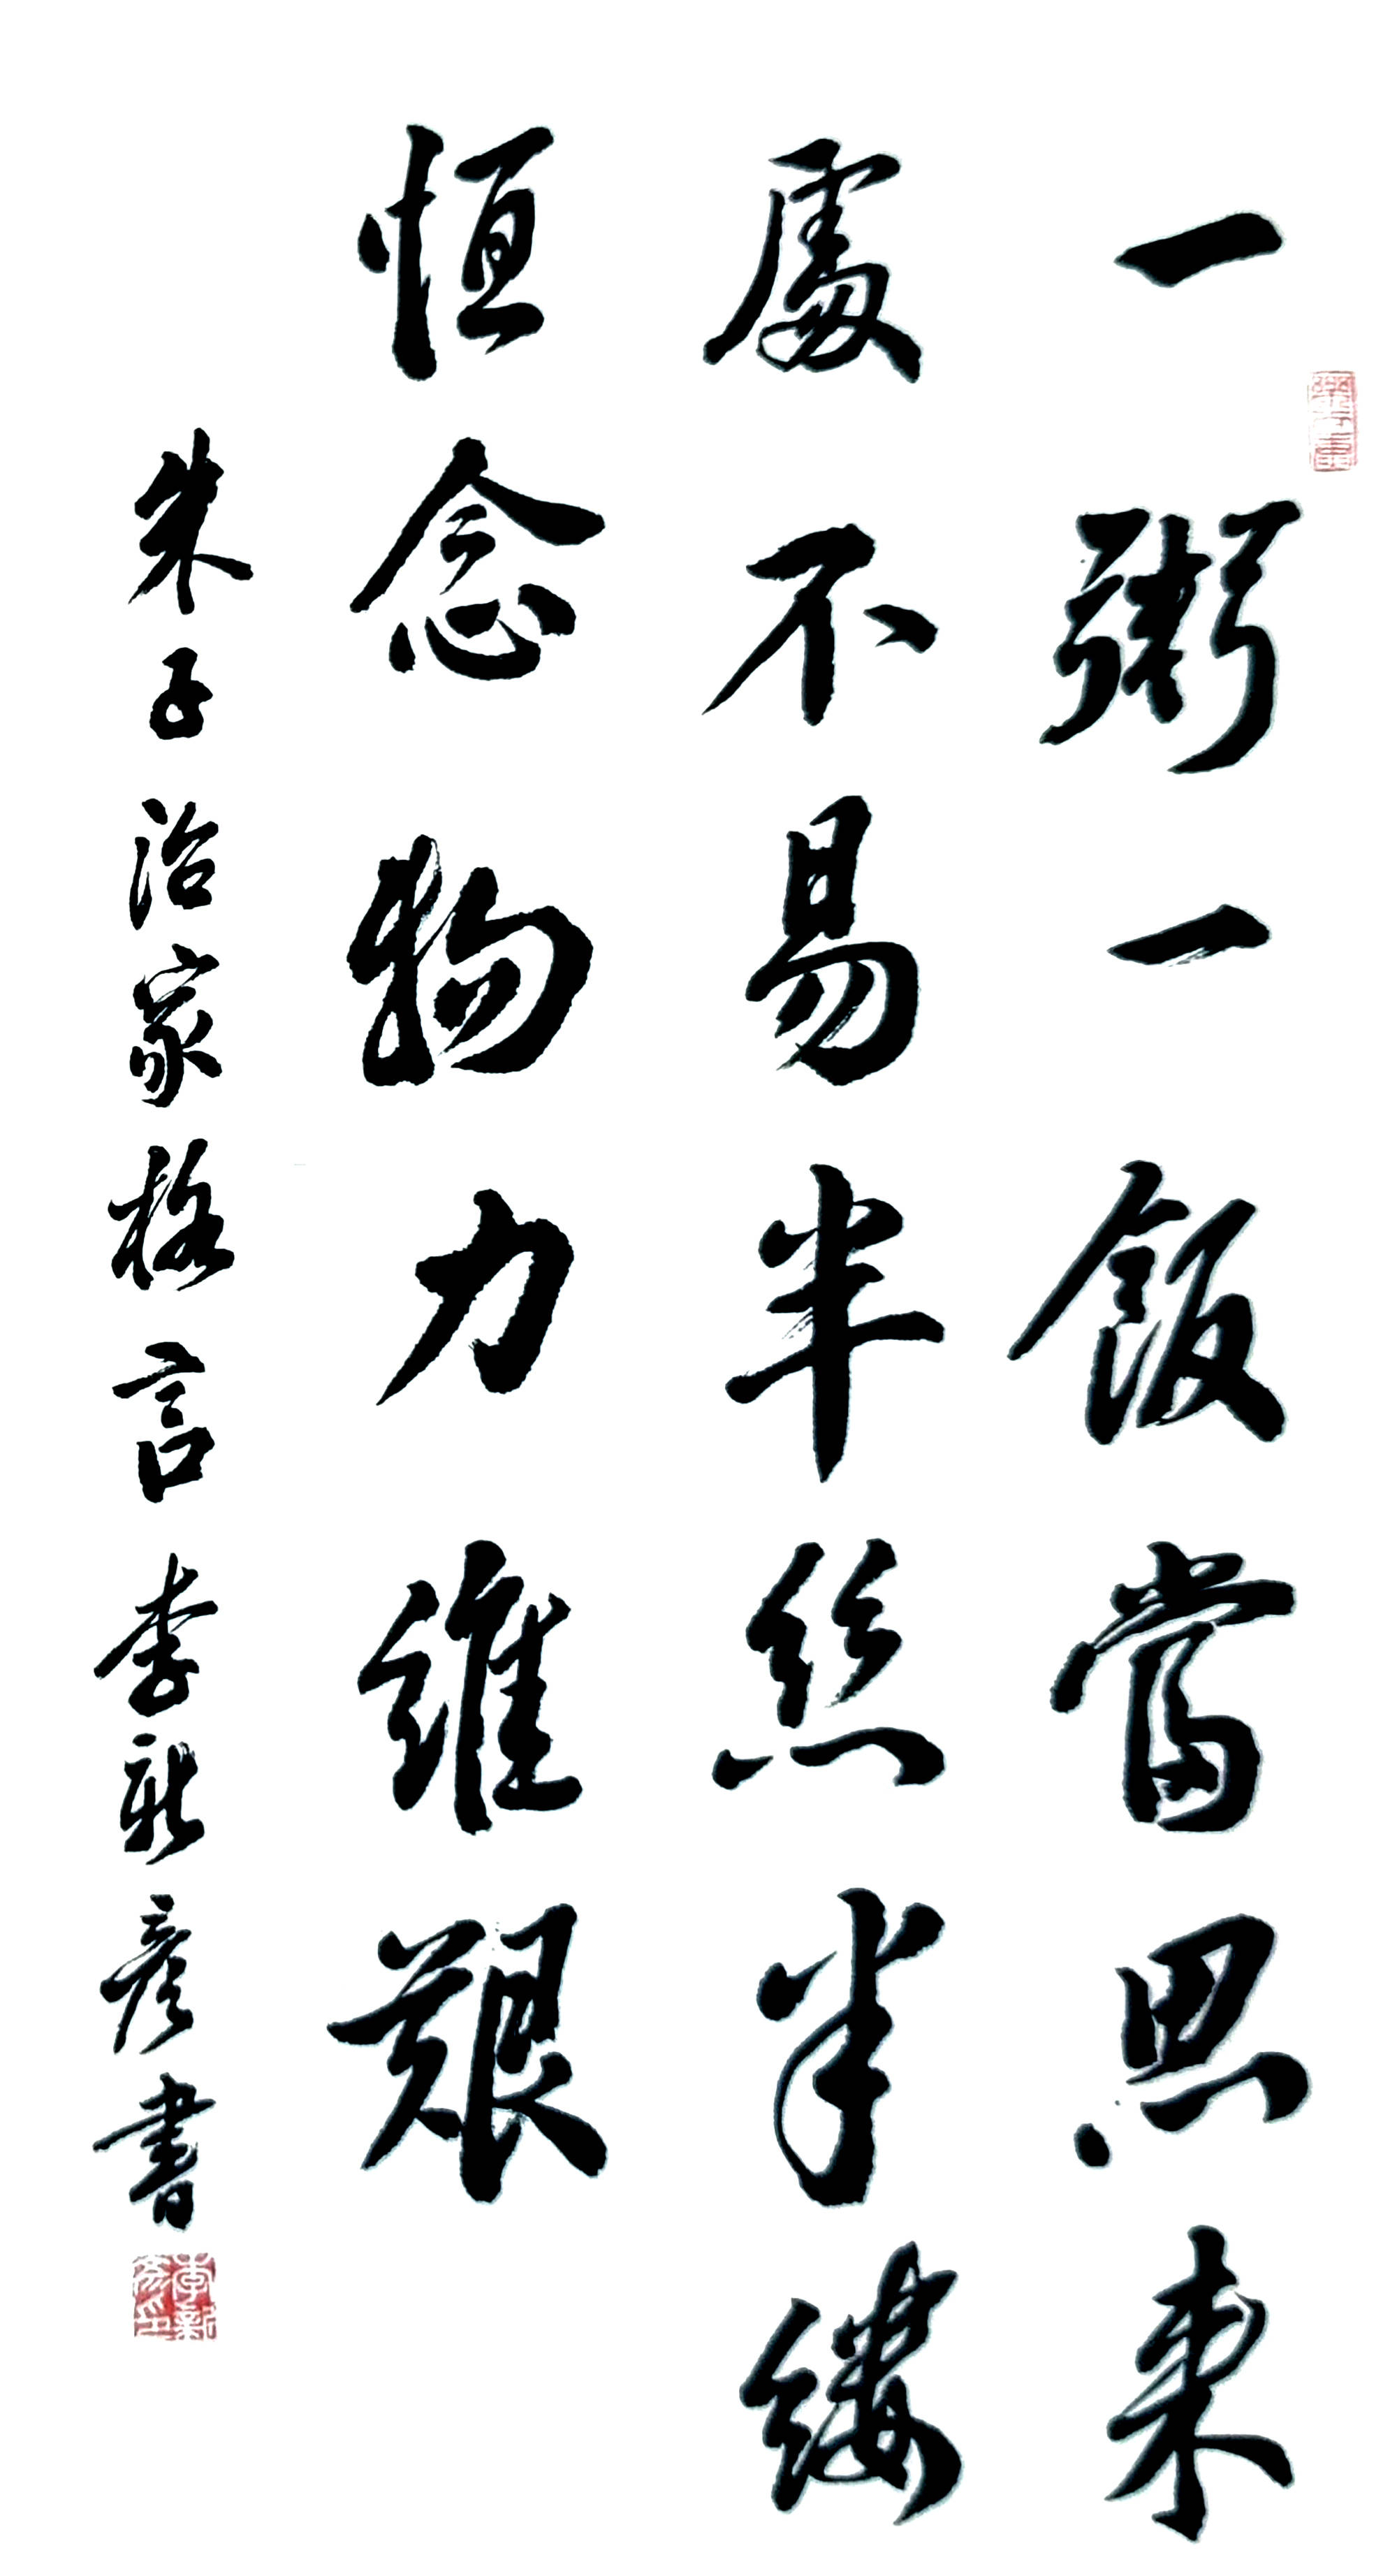 一粥一飯當思来
處不易半絲半縷
恒念物力維艱
朱子治家格言李新彦書
李新彦印